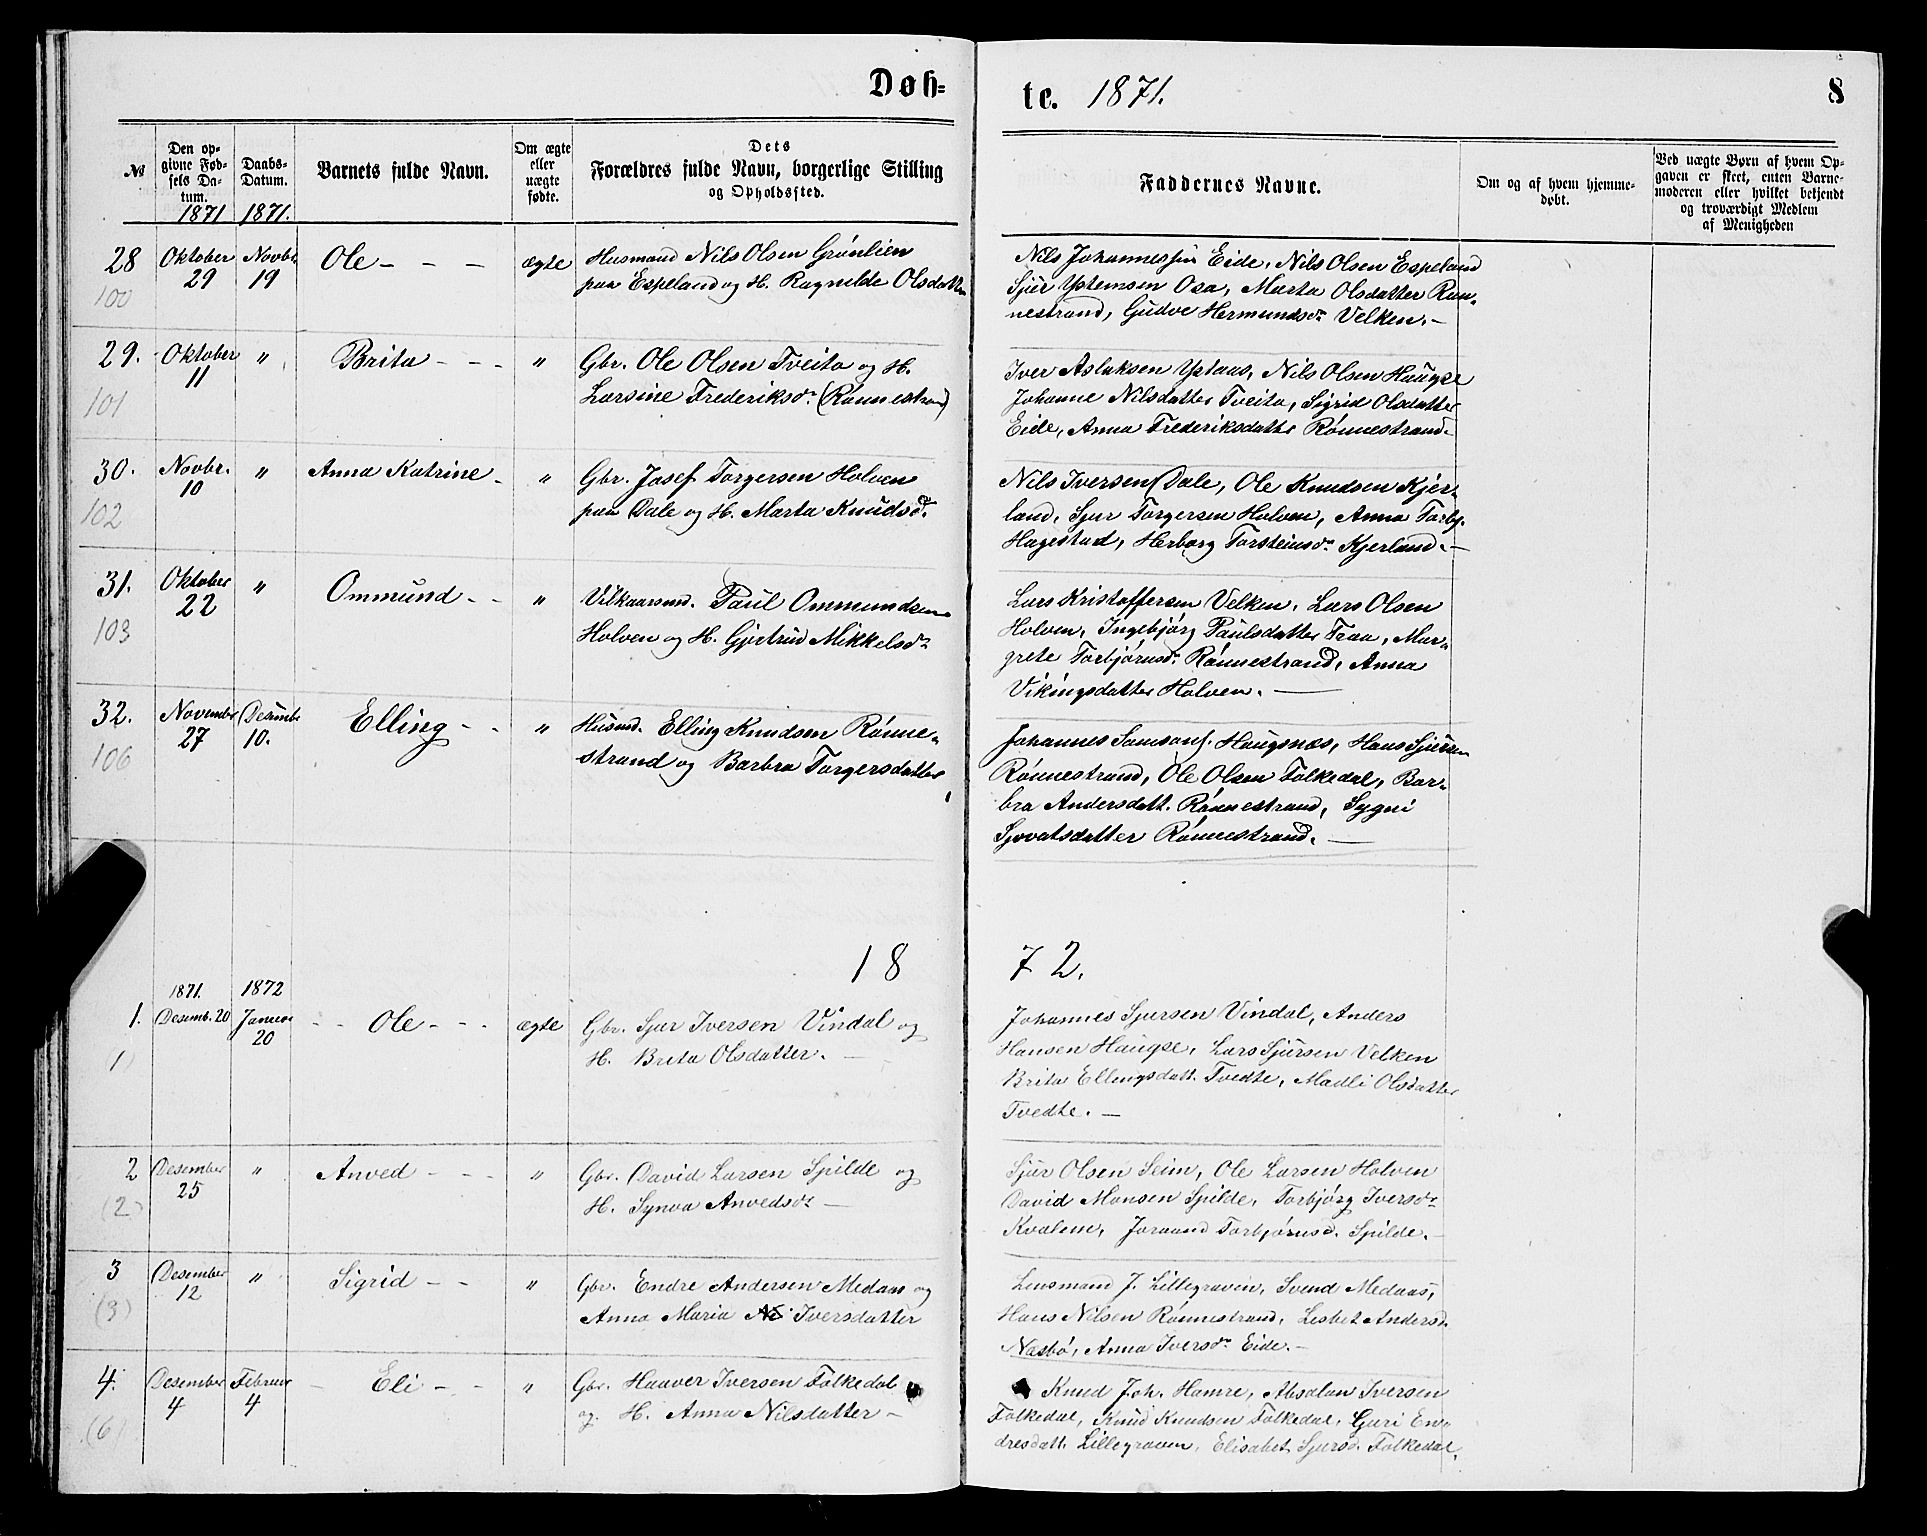 Døb=
te. 1871.
8
№
Den op-
givne Fød-
sels Da-
tum.
1871
Daabs-
Datum.
1871.
Barnets fulde Navn.
Om ægte
eller
uægte
fødte.
Dets
Forældres fulde Navn, borgerlige Stilling
og Opholdssted.
Faddernes Navne.
Om og af hvem hjemme-
døbt.
Ved uægte Børn af hvem Op-
gaven er skeet, enten Barne-
moderen eller hvilket bekjendt
og troværdigt Medlem
af Menigheden
28
100
Oktober
29
Novbr.
19
Ole - - -
ægte
Husmand Nils Olsen Grønlien
paa Espeland og H. Ragnilde Olsdatter
Nils Johannessen Eide, Nils Olsen Espeland
Sjur Ystensen Osa, Marta Olsdatter Røn-
nestrand, Gudve Hermundsdr Velken. -
29.
101
Oktober
11
"
Brita - - -
"
Gbr. Ole Olsen Tveito og H.
Larsine Frederiksdr. (Rønnestrand)
Iver Aslaksen Ystaas, Nils Olsen Haugse
Johanne Nilsdatter Tveito, Sigrid Olsdatter
Eide, Anna Frederiksdatter Rønnestrand.
30.
102
Novbr.
10
"
Anna Katrine -
"
Gbr. Josef Torgersen Holven
paa Dale og H. Marta Knudsd.
Nils Iversen Dale, Ole Knudsen Kjer-
land, Sjur Torgersen Holven, Anna Torbj.
Hagestad, Herborg Torsteinsdr Kjerland. -
31.
103
Oktober
22
"
Ommund - -
"
Vilkaarsmd. Paul Ommundsen
Holven og H. Gjertrud Mikkelsdr
Lars Kristoffersen Velken, Lars Olsen
Holven, Ingebjørg Paulsdatter Traa, Mar-
grete Torbjørnsdr. Rønnestrand, Anna
Vikingsdatter Holven. -
32.
106
November
27
Desember
10.
Elling - -
"
Husmd. Elling Knudsen Rønne-
strand og Barbra Torgersdatter
Johannes Samsons. Haugsnæs, Hans Sjursen
Rønnestrand, Ole Olsen Folkedal, Bar-
bra Andersdatt. Rønnestrand, Sygni
Sjovatsdatter Rønnestrand. -
18 72.
1.
(1)
1871.
Desemb. 20
1872
Januar
20
- - Ole - - -
ægte
Gbr. Sjur Iversen Vindal og
H. Brita Olsdatter. -
Johannes Sjursen Vindal, Anders
Hansen Haugse, Lars Sjursen Velken
Brita Ellingsdatt. Tvedte, Madli Olsdatter
Tvedte. -
2
(2)
Desember
25
"
Anved - - -
"
Gbr. David Larsen Spilde og
H. Synva Anvedsdr -
Sjur Olsen Seim, Ole Larsen Holven
David Monsen Spilde, Torbjørg Iversdr
Kvalem, Joraand Torbjørnsd. Spilde. -
3
(3)
Desember
12
"
Sigrid - -
"
Gbr. Endre Andersen Medaas og
Anna Maria Iversdatter
Lensmand J. Lillegraven, Svend Medaas,
Hans Nilsen Rønnestrand, Lisbet Andersd.
Næsbø, Anna Iversdr Eide. -
4.
(6)
Desember
4
Februar
4
- Eli - -
"
Gbr. Haaver Iversen Folkedal
og H. Anna Nilsdatter -
Knud Joh. Hamre, Absalon Iversen
Folkedal, Knud Knudsen Folkedal, Guri En-
dresdatt. Lillegraven, Elisabet Sjursd. Folkedal.